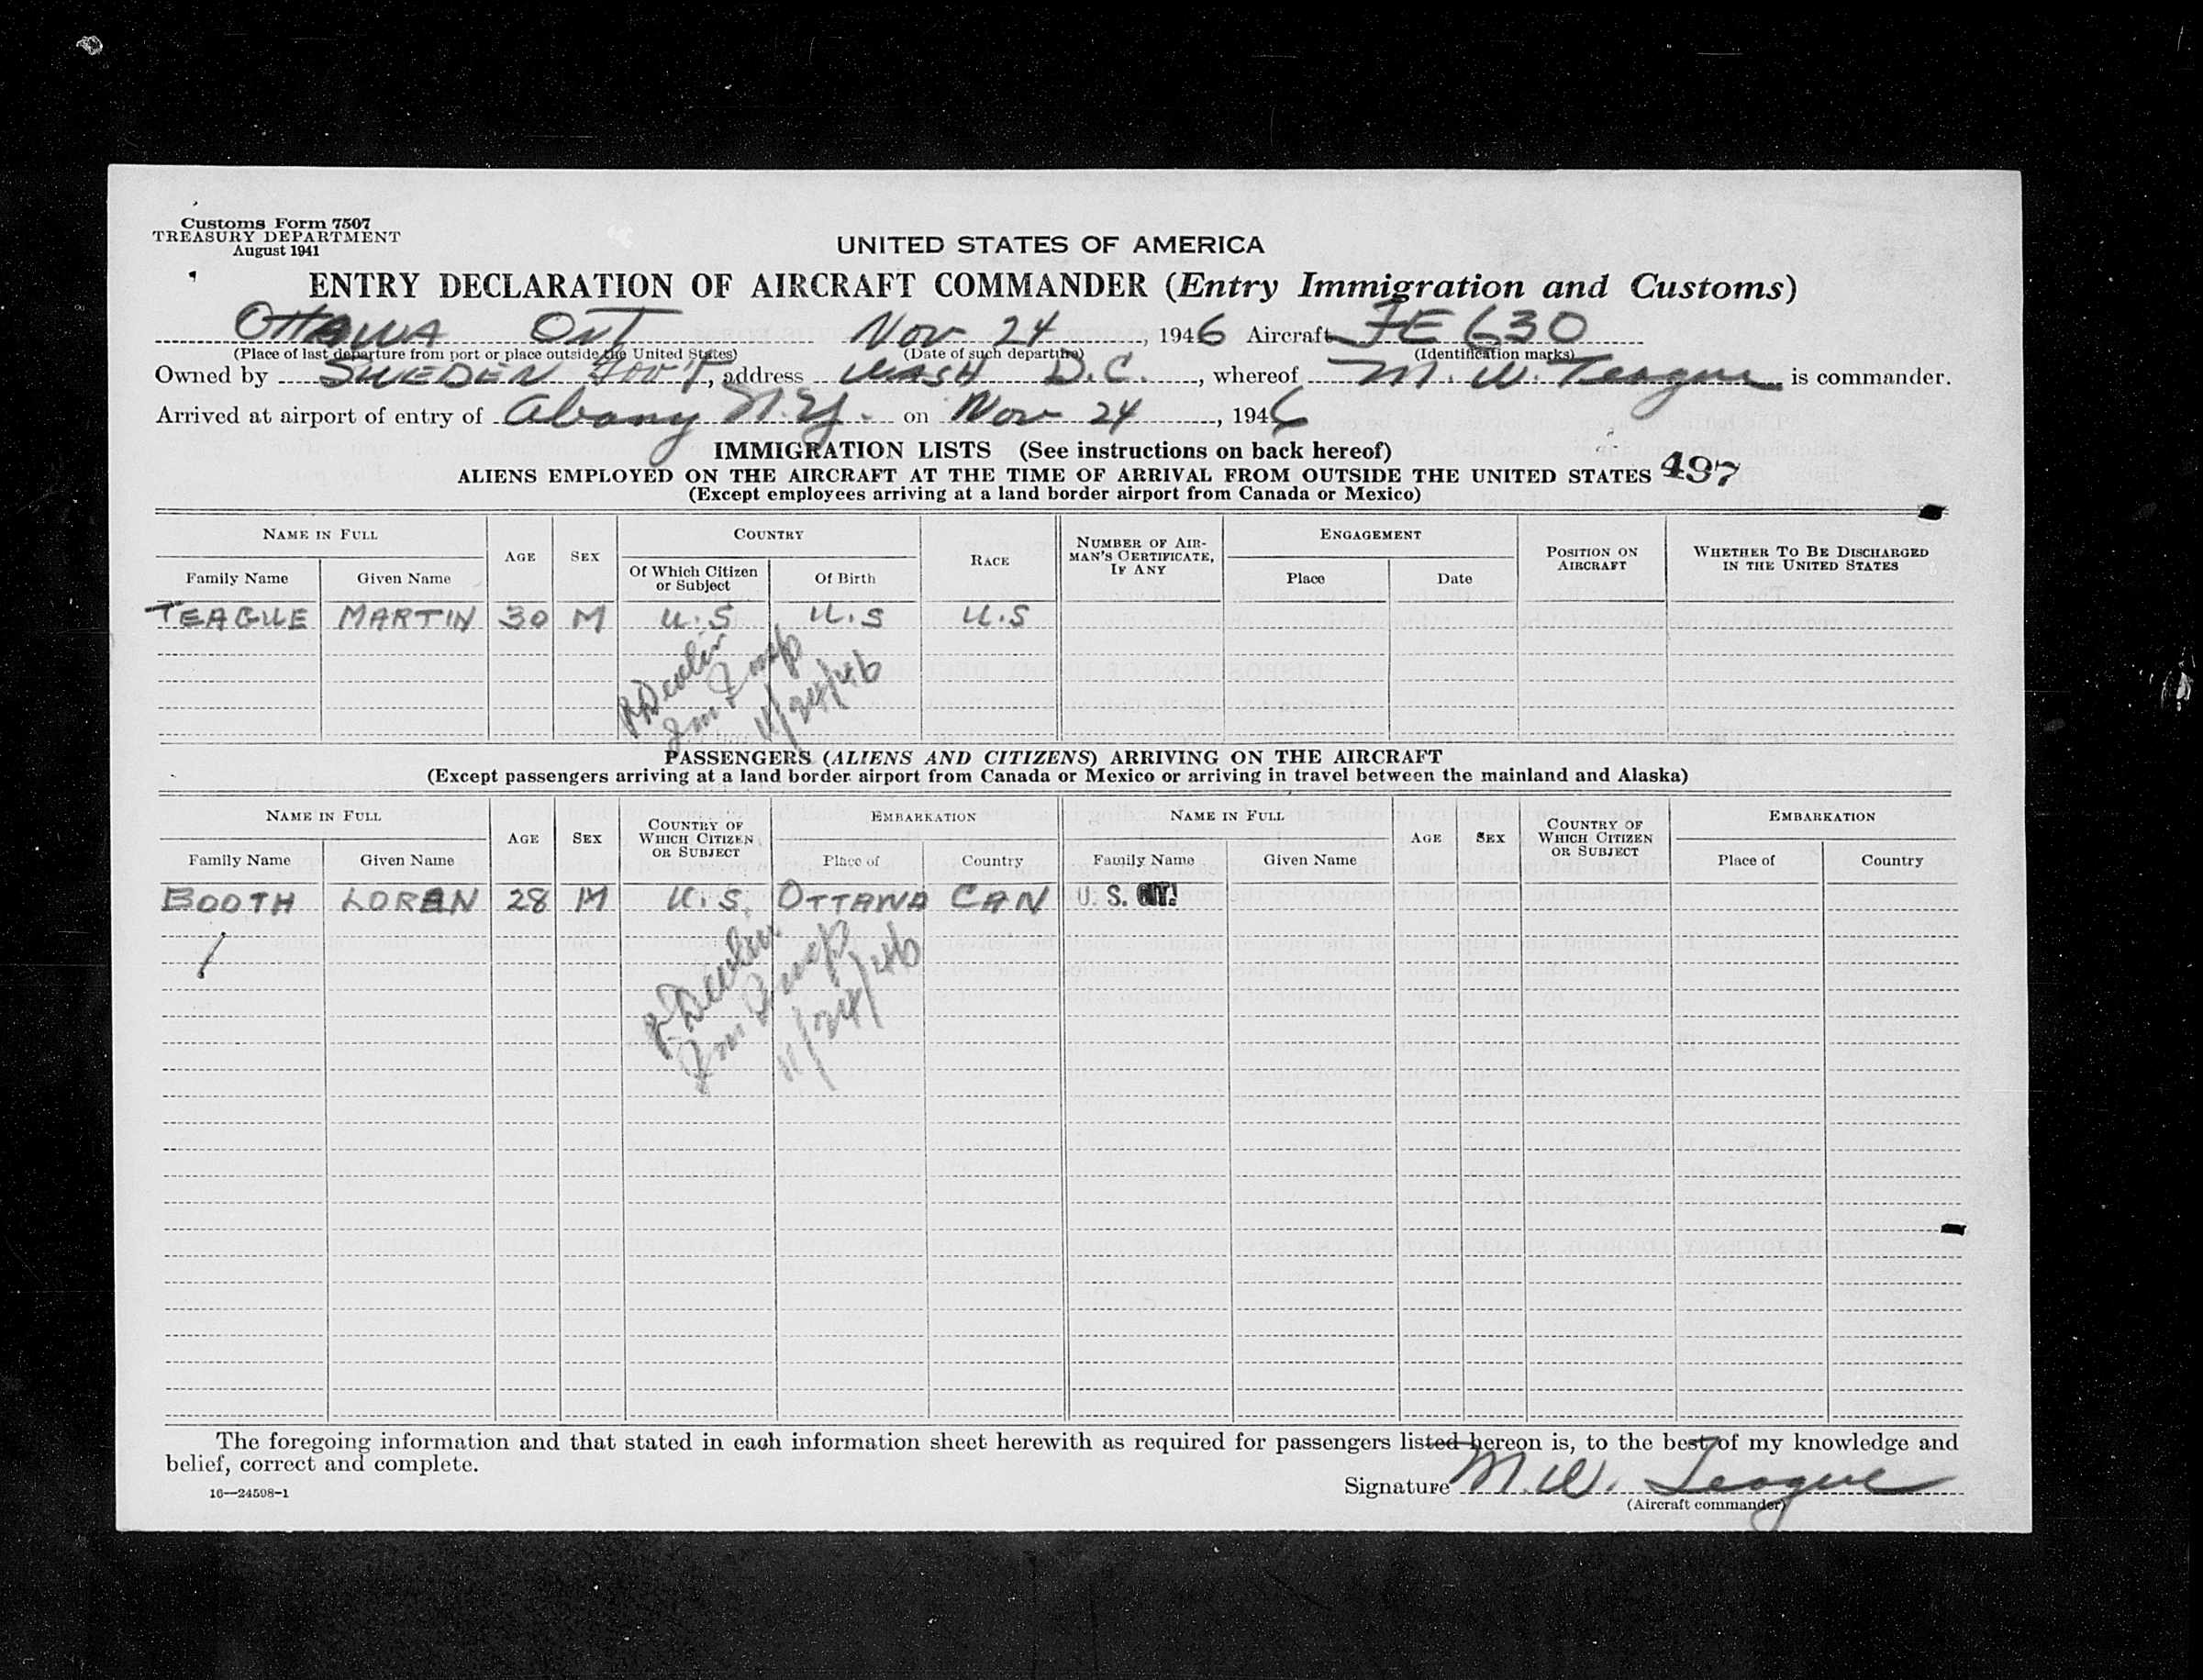 Customs Form 7507
TREASURY DEPARTMENT
August 1941
UNITED STATES OF AMERICA
ENTRY DECLARATION OF AIRCRAFT COMMANDER (Entry Immigration and Customs)
OTTAWA ONT Nov 24, 1946 Aircraft FE 630
(Place of last departure from port or place outside the United States) (Date of such departure) (Identification marks)
Owned by SWEDEN Gov'T, address WASH D.C., whereof M. W. Teague is commander.
Arrived at airport of entry of Albany N.Y. on Nov 24, 1946
IMMIGRATION LISTS (See instructions on back hereof)
ALIENS EMPLOYED ON THE AIRCRAFT AT THE TIME OF ARRIVAL FROM OUTSIDE THE UNITED STATES 497
(Except employees arriving at a land border airport from Canada or Mexico)
NAME IN FULL AGE SEX COUNTRY RACE NUMBER OF AIRMAN'S CERTIFICATE, IF ANY ENGAGEMENT POSITION ON AIRCRAFT WHETHER TO BE DISCHARGED IN THE UNITED STATES
Family Name Given Name Of Which Citizen or Subject Of Birth Place Date
TEAGUE MARTIN 30 M U.S U.S U.S
R Devlin
Im Insp
11/24/46
PASSENGERS (ALIENS AND CITIZENS) ARRIVING ON THE AIRCRAFT
(Except passengers arriving at a land border airport from Canada or Mexico or arriving in travel between the mainland and Alaska)
NAME IN FULL AGE SEX COUNTRY OF WHICH CITIZEN OR SUBJECT EMBARKATION NAME IN FULL AGE SEX COUNTRY OF WHICH CITIZEN OR SUBJECT EMBARKATION
Family Name Given Name Place of Country Family Name Given Name Place of Country
BOOTH LOREN 28 M U.S. OTTAWA CAN U. S. CIT.
R Devlin
Im Insp
11/24/46
The foregoing information and that stated in each information sheet herewith as required for passengers listed hereon is, to the best of my knowledge and
belief, correct and complete.
Signature M.W. Teague
(Aircraft commander)
16—24508-1